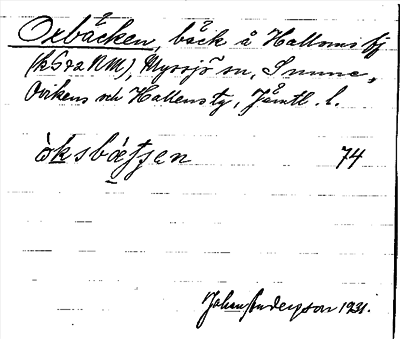 Oxbäcken, bäck å Halloms fj
(k S öa N M), Myssjö sn, Sunne,
Ovikens och Hallens tg, Jämtl. l.
òksbǽtjen 74
Johan Anderson 1931.